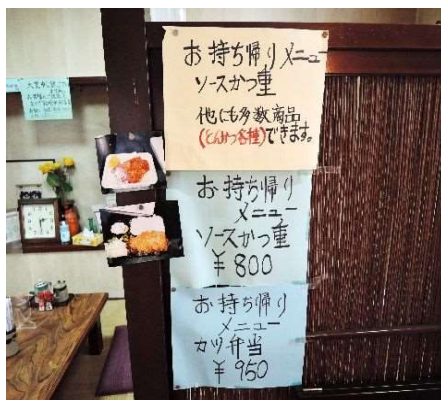 お持ち帰りメニュー
ソースかつ重
他にも多数商品
(とんかつ各種)できます。
お持ち帰り
メニュー
ソースかつ重
¥800
お持ち帰り
メニュー
カツ弁当
¥950